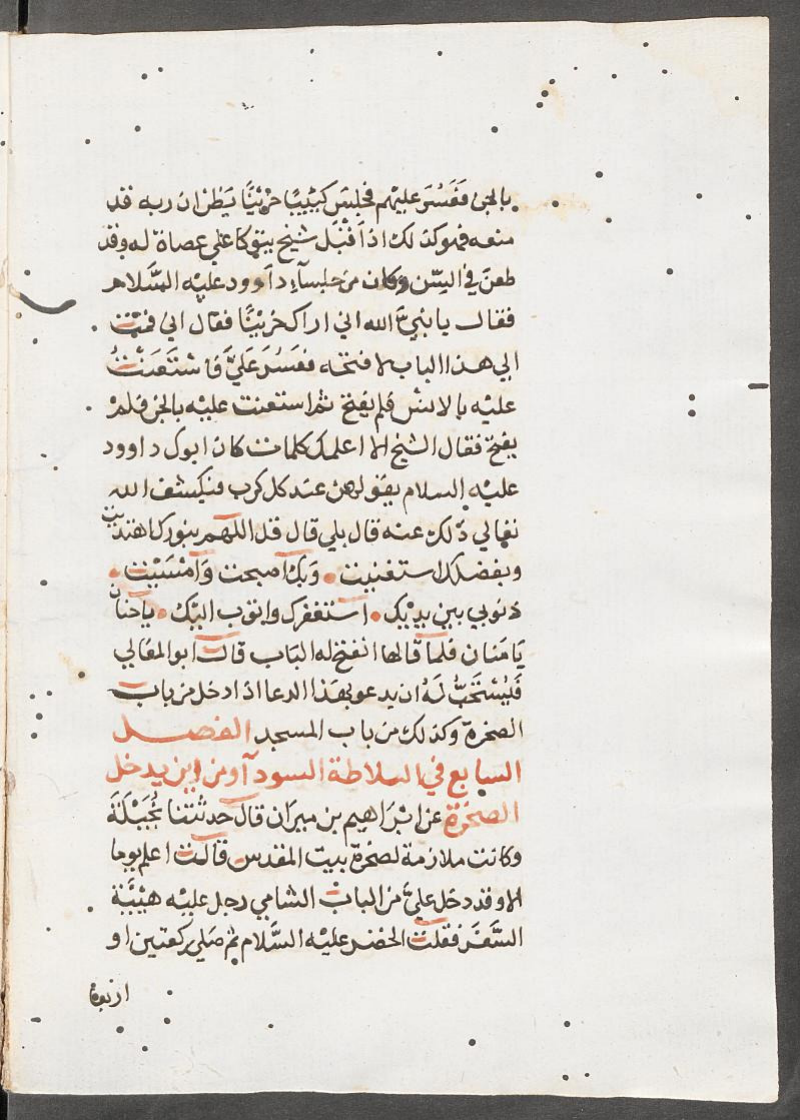 بالجن فَعَسُرَ عليهم فجلس كئيبًا حزينًا يَظن ان ربه قد
منعه فهو كذلك اذ اقبل شيخ يتوكا علي عصاة له وقد
طعن في السن وكان من جلساء داوود عليه السَّلام
فقال يا نبي الله اني اراك حزينًا فقال اني قمت
الي هذا الباب لا فتحه فعَسُرَ عَليَّ فاستَعَنْتُ
عليه بالانس فلم يفتح ثم استعنت عليه بالجن فلم
يفتح فقال الشيخ الا اعلمك كلمات كان ابوك داوود
عليه السلام يقولهن عند كل كرب فيكشف الله
تعالي ذلك عنه قال بلي قال قل اللهم بنورك اهتديت
وبفضلك استغنيت وَبك اصبحت وَامْسَيْت
ذنوبي بين يديك استغفرك واتوب اليك ياحنان
يَامَنان فلما قالها انفتح له البَاب قال ابو المعَالي
فَيُسْتَحَبُّ لَهُ ان يدعو بهذا الدعا اذا دخل من باب
الصخرة وكذلك من باب المسجد الفصل
السابع في البلاطة السودآ ومن اين يدخل
الصخرة عن ابْرَاهيم بن مهران قال حدثتنا
وكانت ملازمة لصخرة بيت المقدس قالت اعلم يوما
الا وقد دخل عليَّ من الباب الشامي رجل عليه هيْئَة
السَّفَر فقلت الخضر عليه السَّلام ثم صَلي ركعتين او
اربعا